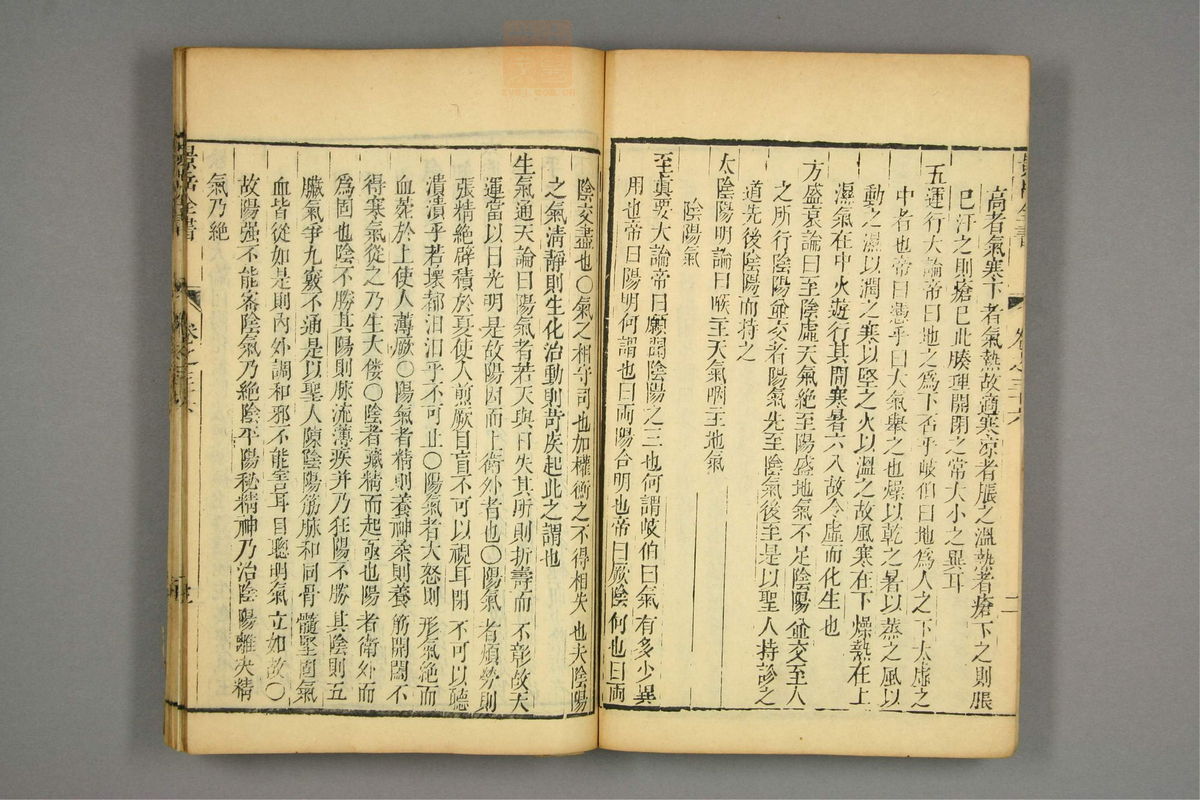 高者氣寒下者氣熱故適寒凉者脹之溫熱者瘡下之則脹
已汗之則瘡已此腠理開閉之常大小之異耳
五運行大論帝曰地之爲下否乎岐伯曰地爲人之下太虛之
中者也帝曰馮乎曰大氣舉之也燥以乾之暑以蒸之風以
動之濕以潤之寒以堅之火以溫之故風寒在下燥熱在上
濕氣在中火遊行其間寒暑六入故令虛而化生也
方盛衰論曰至陰虛天氣絶至陽盛地氣不足陰陽並交至人
之所行陰陽並交者陽氣先至陰氣後至是以聖人持診之
道先後陰陽而持之
太陰陽明論曰喉主天氣咽主地氣
陰陽氣
至眞要大論帝曰願聞陰陽之三也何謂岐伯曰氣有多少異
用也帝曰陽明何謂也曰兩陽合明也帝曰厥陰何也曰兩
陰交盡也〇氣之相守司也加權衡之不得相失也夫陰陽
之氣清靜則生化治動則苛疾起此之謂也
生氣通天論曰陽氣者若天與日失其所則折壽而不彰故天
運當以日光明是故陽因而上衛外者也〇陽氣者煩勞則
張精絶辟積於夏使人煎厥目盲不可以視耳閉不可以聽
潰潰乎若壞都汨汨乎不可止〇陽氣者大怒則形氣絶而
血菀於上使人薄厥〇陽氣者精則養神柔則養筋開闔不
得寒氣從之乃生大僂〇陰者藏精而起亟也陽者衛外而
爲固也陰不勝其陽則脉流薄疾并乃狂陽不勝其陰則五
臟氣爭九竅不通是以聖人陳陰陽筋脉和同骨髓堅固氣
血皆從如是則內外調和邪不能害耳目聰明氣立如故〇
故陽强不能密陰氣乃絶陰平陽秘精神乃治陰陽離决精
氣乃絶
景岳全書
卷之三六